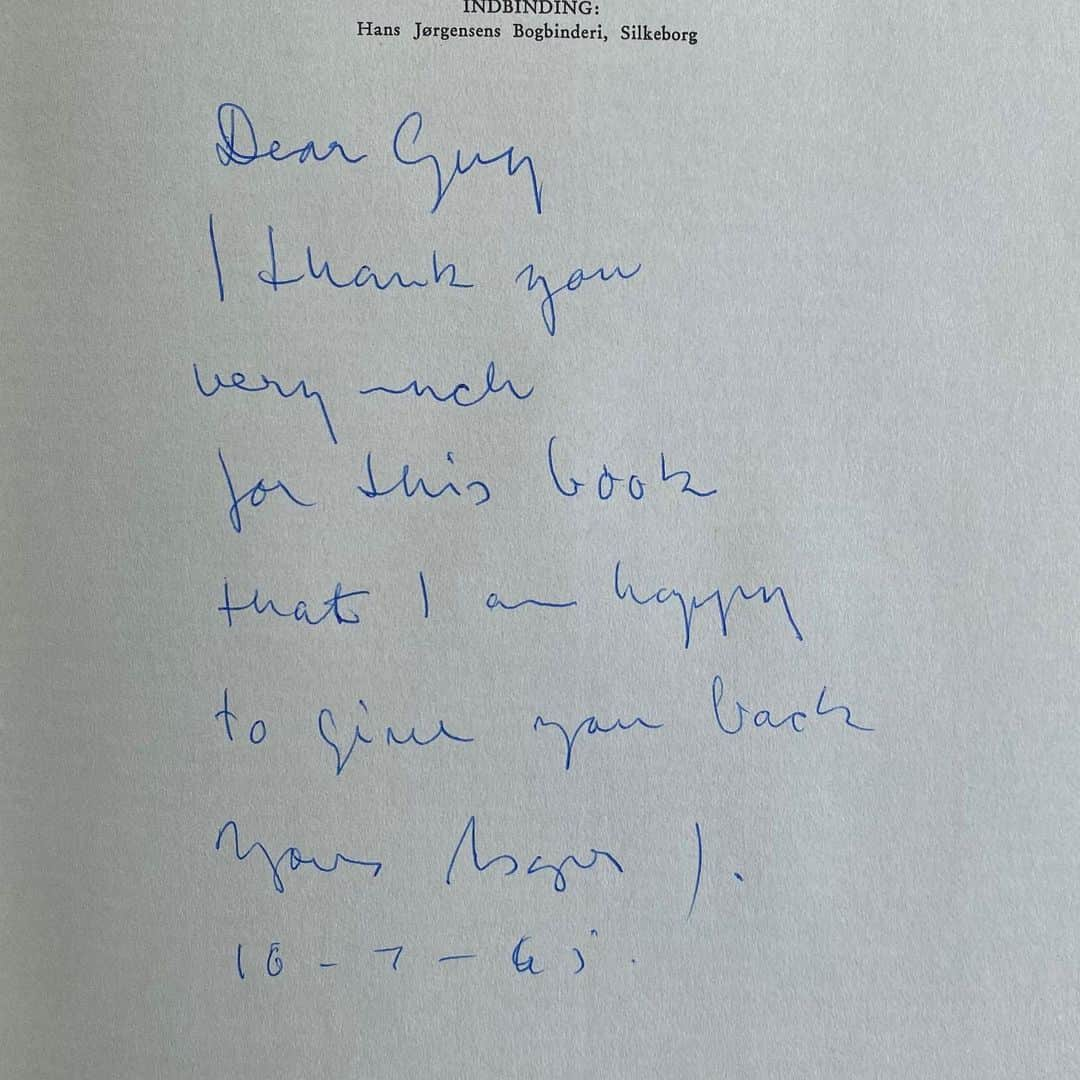 INDBINDING:
Hans Jørgensens Bogbinderi, Silkeborg
Dear Guy
I thank you
very much
for this book
that I am happy
to give you back
Yours Asger J.
16-7-65.